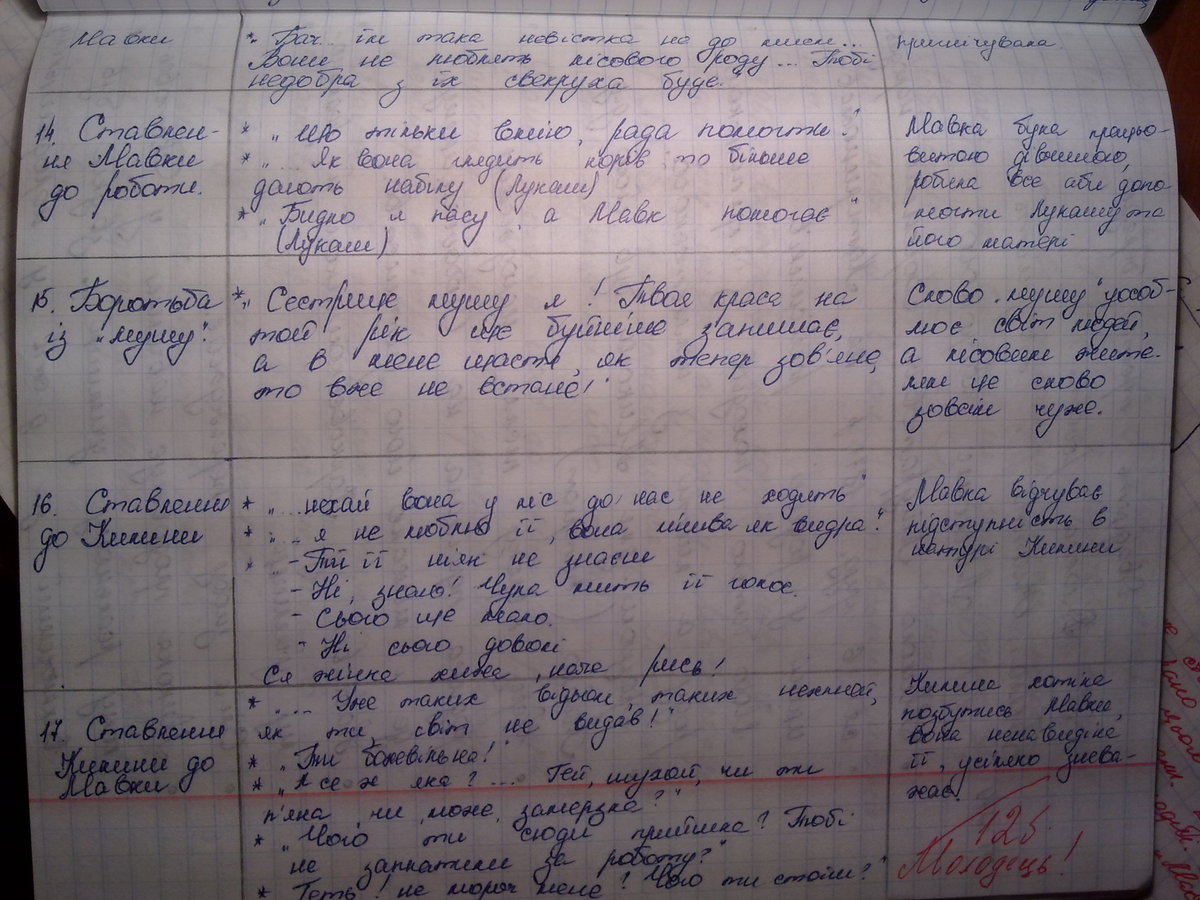 Мавки
* „Бач.. їм така невістка не до мисли...
Вони не люблять лісового роду... Тобі
недобра з їх свекруха буде."
принижувала.
14. Ставлен-
ня Мавки
до роботи.
* „Що тільки вмію, рада помогти."
* „... Як вона глядить корів то більше
дають набілу (Лукаш)
* „Бидло я пасу, а Мавк помогає"
(Лукаш)
Мавка була працьо-
витою дівчиною,
робила все аби допо
могти Лукашу та
його матері
15. Боротьба
із „мушу".
* „Сестрице мушу я! Твоя краса на
той рік ще буйніше запишає,
а в мене щастя, як тепер зов'яне,
то вже не встане!"
Слово „мушу" уособ-
лює світ людей,
а лісовим жите-
лям це слово
зовсім чуже.
16. Ставлення
до Килини
* „... нехай вона у ліс до нас не ходить"
* „... я не люблю її, вона лукава як видра."
* - Ти її ніяк не знаєш
- Ні, знаю! Чула сміх її і голос.
- Сього ще мало.
- Ні сього доволі
Ся жінка хижа, наче рись!
Мавка відчуває
підступність в
натурі Килини
17. Ставлення
Килини до
Мавки
* „... Уже таких відьом, таких нехлюй,
як ти, світ не видав!"
* „Ти божевільна!"
* „А се ж яка?... Гей, слухай, чи ти
п'яна, чи може, замерзла?"
* „Чого ти сюди прийшла? Тобі
не заплатили за роботу?"
* Геть! не мороч мене! Чого ти стоїш?"
Килина хотіла
позбутись Мавки,
вона ненавиділа
її, усіляко знева-
жає.
12б.
Молодець!